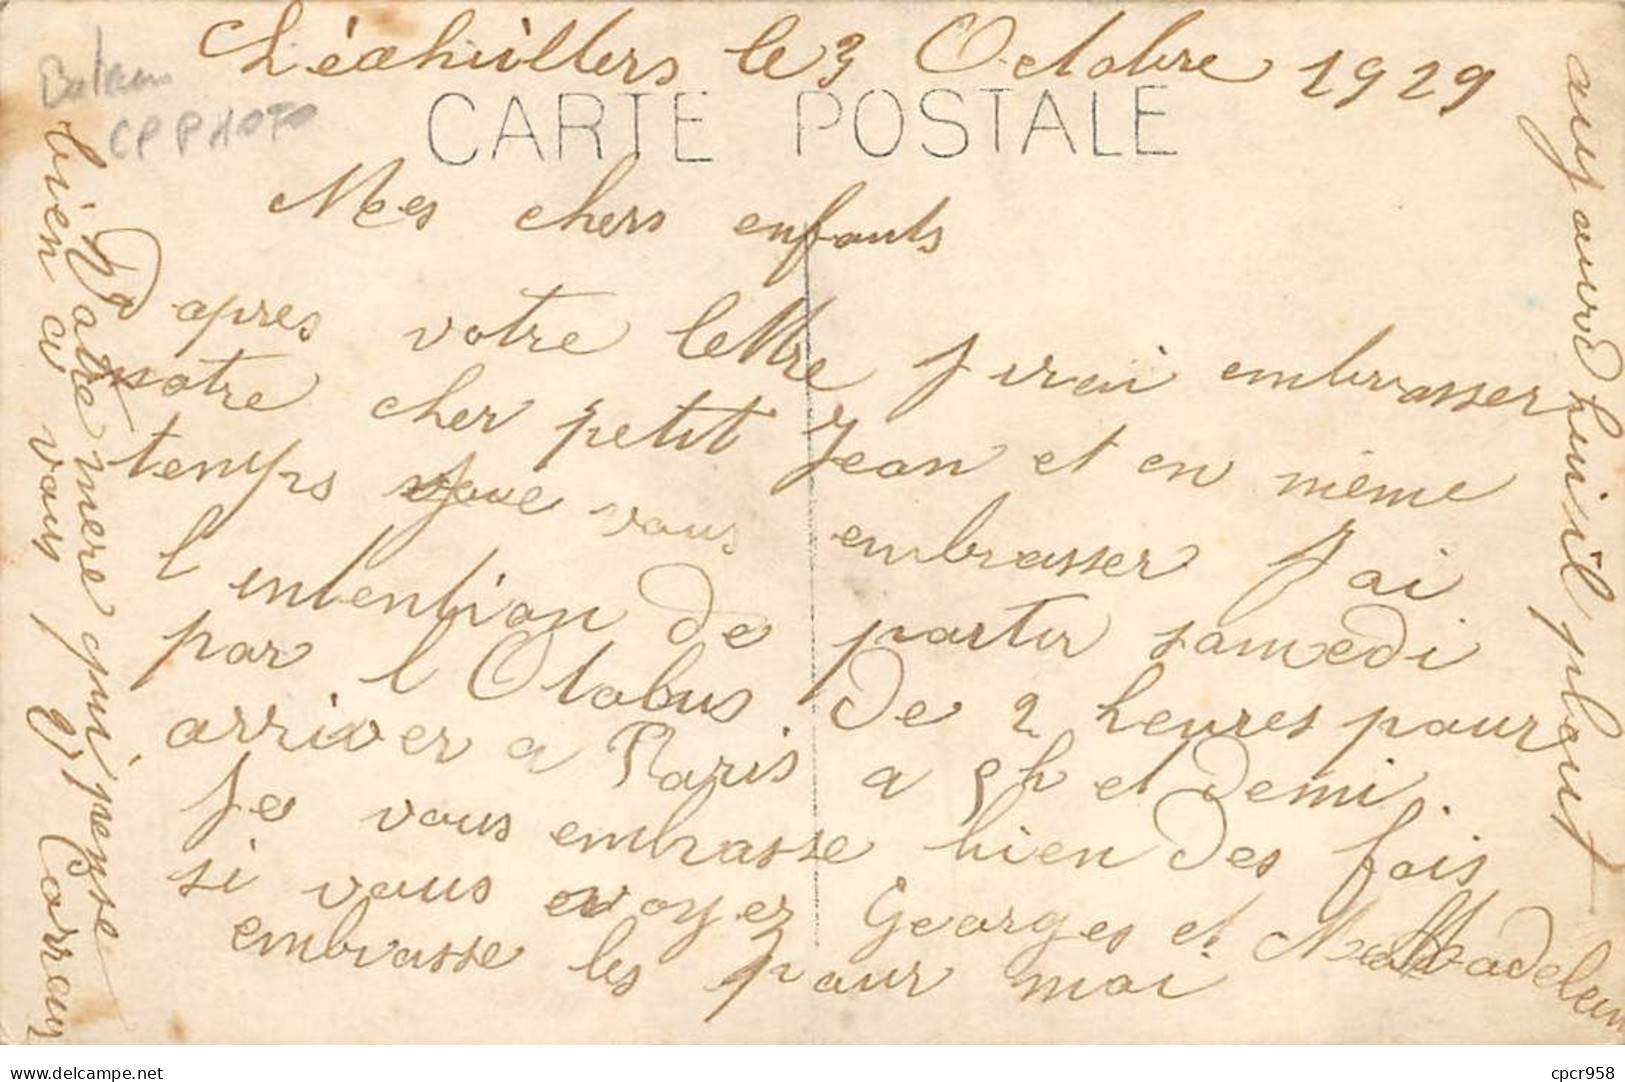 Léchuillers le 3 Octobre 1929
CARTE POSTALE
CP PHOTO
Mes chers enfants
D apres votre lettre J irai embrasser
notre cher petit Jean et en même
temps que vous embrasser J ai
l intention de partir samedi
par l Otobus de 2 heures pour
arriver a Paris a 5h et demi.
Je vous embrasse bien des fois
si vous voyez Georges et Madeleine
embrasse les pour moi
Votre mere qui pense
bien a vous
Vve Carreau
aujourd huit il pleut
cpcr958
www.delcampe.net